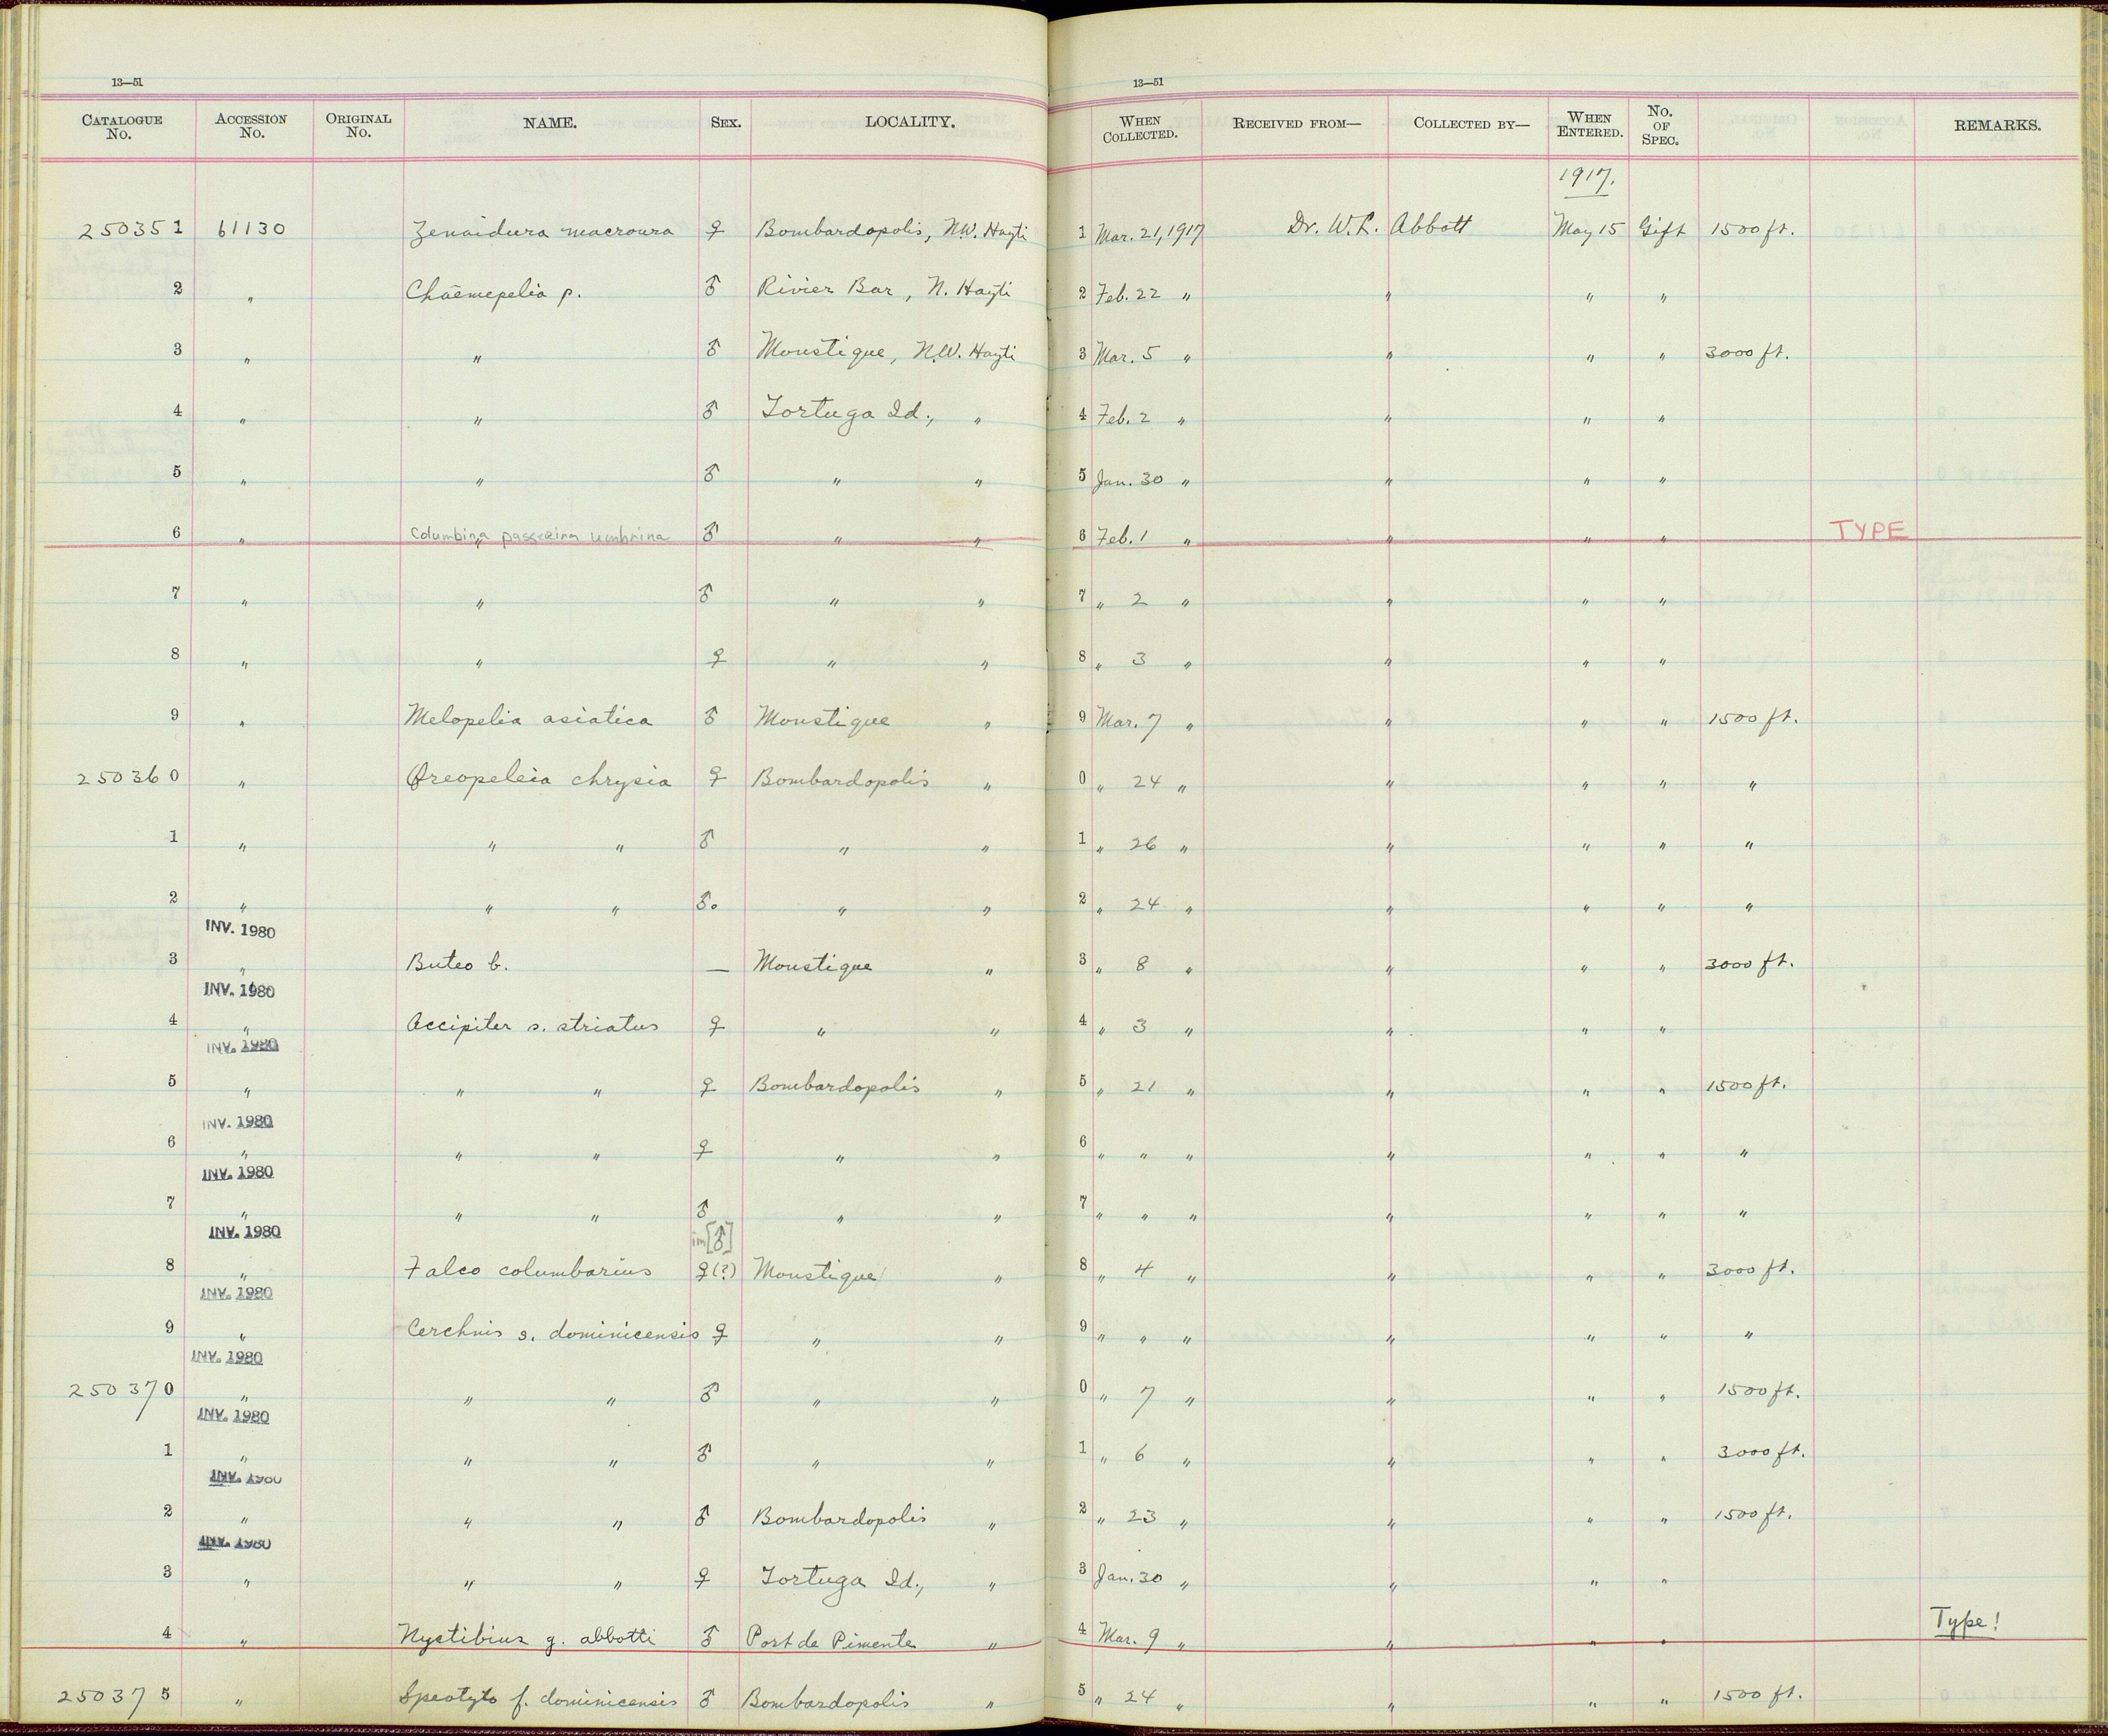 13—51
13—51
CATALOGUE No. ACCESSION No. ORIGINAL No. NAME. SEX. LOCALITY. WHEN COLLECTED. RECEIVED FROM— COLLECTED BY— WHEN ENTERED. No. OF SPEC. REMARKS.
1917.
250351 61130 Zenaidura macroura ♀ Bombardopolis, N.W. Hayti 1 Mar. 21, 1917 Dr. W. L. Abbott May 15 Gift 1500 ft.
2 " Chaemepelia p. ♂ Rivier Bar, N. Hayti 2 Feb. 22 " " " "
3 " " ♂ Moustique, N.W. Hayti 3 Mar. 5 " " " " 3000 ft.
4 " " ♂ Tortuga Id., " 4 Feb. 2 " " " "
5 " " ♂ " " 5 Jan. 30 " " " "
6 " " Columbina passerina umbrina ♂ " " 6 Feb. 1 " " " " TYPE
7 " " ♂ " " 7 " 2 " " " "
8 " " ♀ " " 8 " 3 " " " "
9 " Melopelia asiatica ♂ Moustique " 9 Mar. 7 " " " " 1500 ft.
250360 " Oreopeleia chrysia ♀ Bombardopolis " 0 " 24 " " " " "
1 " " " ♂ " " 1 " 26 " " " " "
2 " " " ♂. " " 2 " 24 " " " " "
INV. 1980
3 " Buteo b. — Moustique " 3 " 8 " " " " 3000 ft.
INV. 1980
4 " Accipiter s. striatus ♀ " " 4 " 3 " " " "
INV. 1980
5 " " " ♀ Bombardopolis " 5 " 21 " " " " 1500 ft.
INV. 1980
6 " " " ♀ " " 6 " " " " " " "
INV. 1980
7 " " " ♂ " " 7 " " " " " " "
INV. 1980 im [♂]
8 " Falco columbarius ♀(?) Moustique " 8 " 4 " " " " 3000 ft.
INV. 1980
9 " Cerchnis s. dominicensis ♀ " " 9 " " " " " " "
INV. 1980
250370 " " " ♂ " " 0 " 7 " " " " 1500 ft.
INV. 1980
1 " " " ♂ " " 1 " 6 " " " " 3000 ft.
INV. 1980
2 " " " ♂ Bombardopolis " 2 " 23 " " " " 1500 ft.
INV. 1980
3 " " " ♀ Tortuga Id., " 3 Jan. 30 " " " "
4 " Nyctibius g. abbotti ♂ Port de Pimente " 4 Mar. 9 " " " " Type!
250375 " Speotyto f. dominicensis ♂ Bombardopolis " 5 " 24 " " " " 1500 ft.